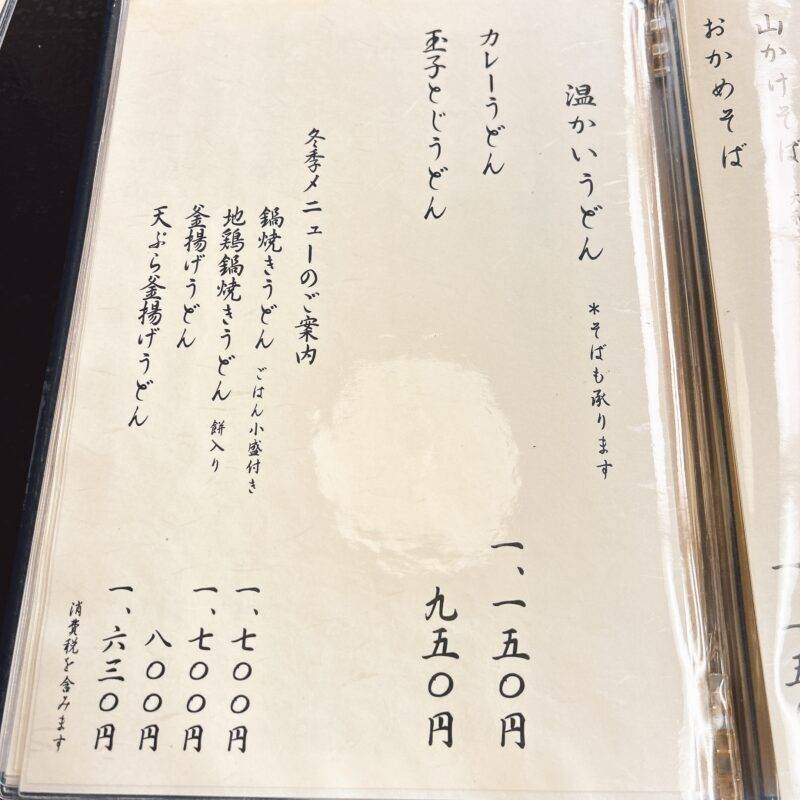 山かけそば
おかめそば
温かいうどん ＊そばも承ります
カレーうどん 一、一五〇円
玉子とじうどん 九五〇円
冬季メニューのご案内
鍋焼きうどん ごはん小盛付き 一、七〇〇円
地鶏鍋焼きうどん 餅入り 一、七〇〇円
釜揚げうどん 八〇〇円
天ぷら釜揚げうどん 一、六三〇円
消費税を含みます